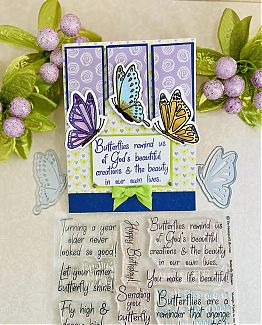 Butterflies remind us
of God's beautiful
creations & the beauty
in our own lives.
Turning a year
older never
looked so good!
Let your inner
butterfly shine!
Fly high &
Happy Birthday!
Sending you
butterfly
Butterflies remind us
of God's beautiful
creations & the beauty
in our own lives.
You make life beautiful!
Butterflies are a
reminder that change